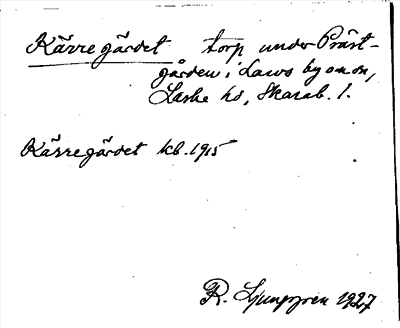 Kärregärdet torp under Präst-
gården i Laws by o. s. on,
Laske hd, Skarab. l.
Kärregärdet kb. 1915
R. Ljunggren 1927